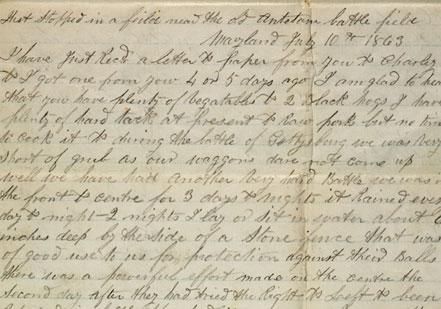 Just Stopped in a field near the old Antetam battle field
Maryland July 10th 1863
I have Just Recd a letter & paper from you & Charley
& I got one from you 4 or 5 days ago I am glad to hear
that you have plenty of begatable & 2 black hogs I have
plenty of hard tack at present & Raw pork but no time
to cook it & during the battle of Gettysburg we was very
short of grub as our waggons dare not come up
well we have had another very hard Battle we was in
the front & centre for 3 days & nights it Rained every
day & night 2 nights I lay or sit in water about
inches deep by the side of a Stone fence that was
of good use to us for protection against their Balls
there was a powerful effort made on the centre the
Second day after they had tried the Right & Left & been